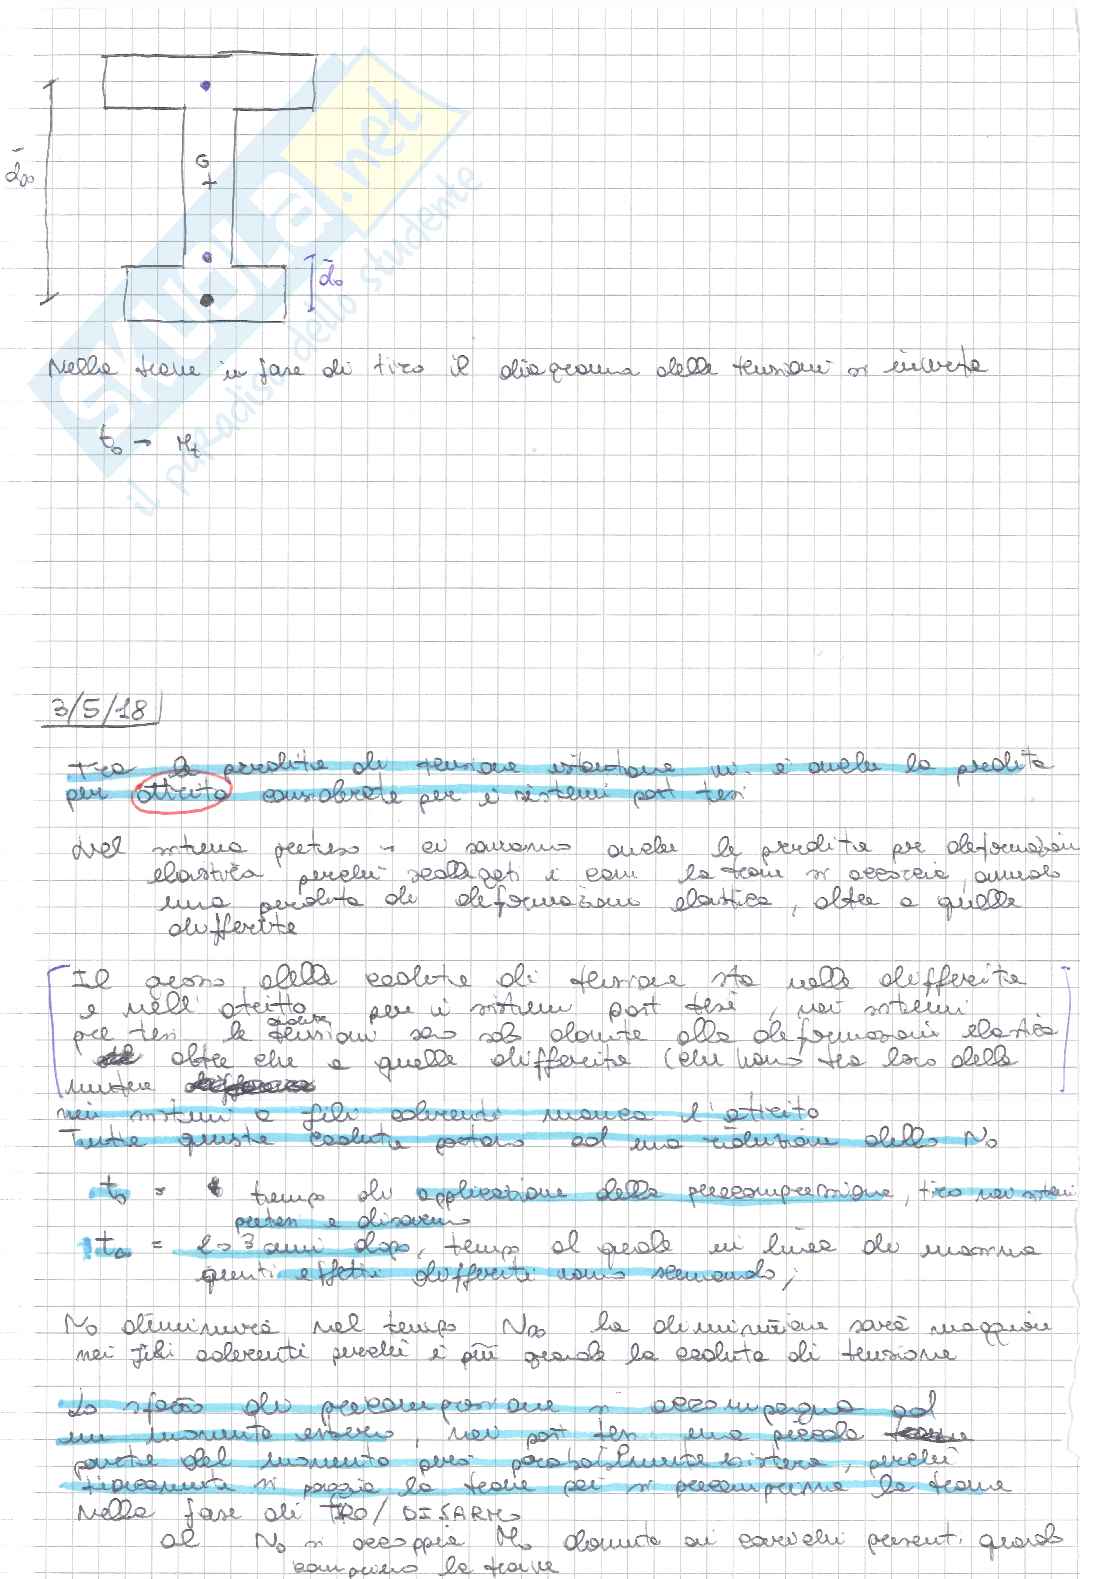 d̄∞
G
d̄o
SKUOLA.net
il paradiso dello studente
Nella trave in fase di tiro il diagramma delle tensioni si inverte
to → Mt
3/5/18
Tra le perdite di tensione istantanee vi è anche la perdita
per attrito considerate per i sistemi post tesi
Nel sistema preteso → ci saranno anche le perdite per deformazioni
elastica perché scollegati i cavi la trave si accorcia, avendo
una perdita di deformazione elastica, oltre a quelle
differite
Il grosso delle cadute di tensione sta nelle differite
e nell'attrito per i sistemi post tesi, nei sistemi
pre tesi le cadute tensioni sono solo dovute alla deformazioni elastica
oltre che a quelle differite (che sono tra loro della
nei sistemi a fili aderenti manca l'attrito
Tutte queste cadute portano ad una riduzione dello No
to = t tempo di applicazione della precompressione, tiro nei sistemi
pretesi e disarmo
t∞ = 2→3 anni dopo, tempo al quale in linea di massima
questi effetti differiti vanno scemando;
No diminuirà nel tempo N∞ la diminuzione sarà maggiore
nei fili aderenti perché è più grande la caduta di tensione
Lo sforzo di precompressione si accompagna ad
un momento esterno, nei post tesi una piccola
parte del momento però probabilmente esisterà, perché
tipicamente si poggia la trave poi si precomprime la trave
Nella fase di TIRO/DISARMO
al No si accoppia Mo dovuto ai carichi presenti quando
comprimo la trave